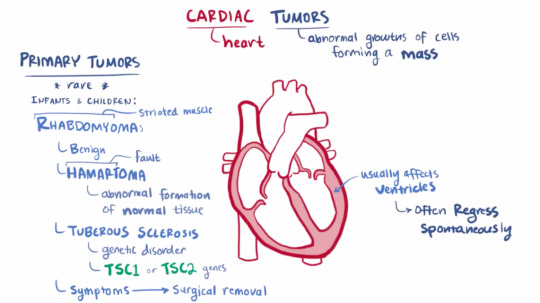 CARDIAC TUMORS
heart
abnormal growths of cells
forming a mass
PRIMARY TUMORS
* rare *
INFANTS & CHILDREN:
Striated muscle
RHABDOMYOMAS
Benign
fault
HAMARTOMA
abnormal formation
of normal tissue
TUBEROUS SCLEROSIS
genetic disorder
TSC1 or TSC2 genes
Symptoms → Surgical removal
usually affects
ventricles
Often Regress
spontaneously